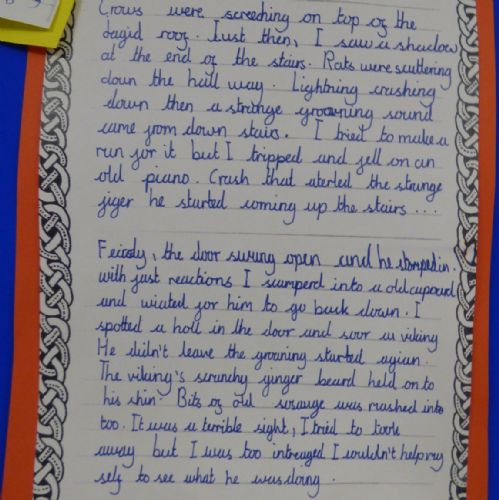 Crows were screeching on top of the
dagid roof. Just then, I saw a shadow
at the end of the stairs. Rats were scuttering
down the hall way. Lightning crashing
down then a strange groowning sound
came from down stairs. I tried to make a
run for it but I tripped and fell on an
old piano. Crash that alerted the strange
figer he started coming up the stairs ...
Feircly, the door swung open and he stomped in.
with fast reactions I scamperd into a old cupourd
and waited for him to go back down. I
spotted a hole in the door and soor a viking
He didn't leave the groaning started agian.
The viking's scrunchy ginger beard held on to
his chin. Bits of old was mashed into
too. It was a terrible sight, I tried to
away but I was too intreaged I couldn't help my
self to see what he was doing.